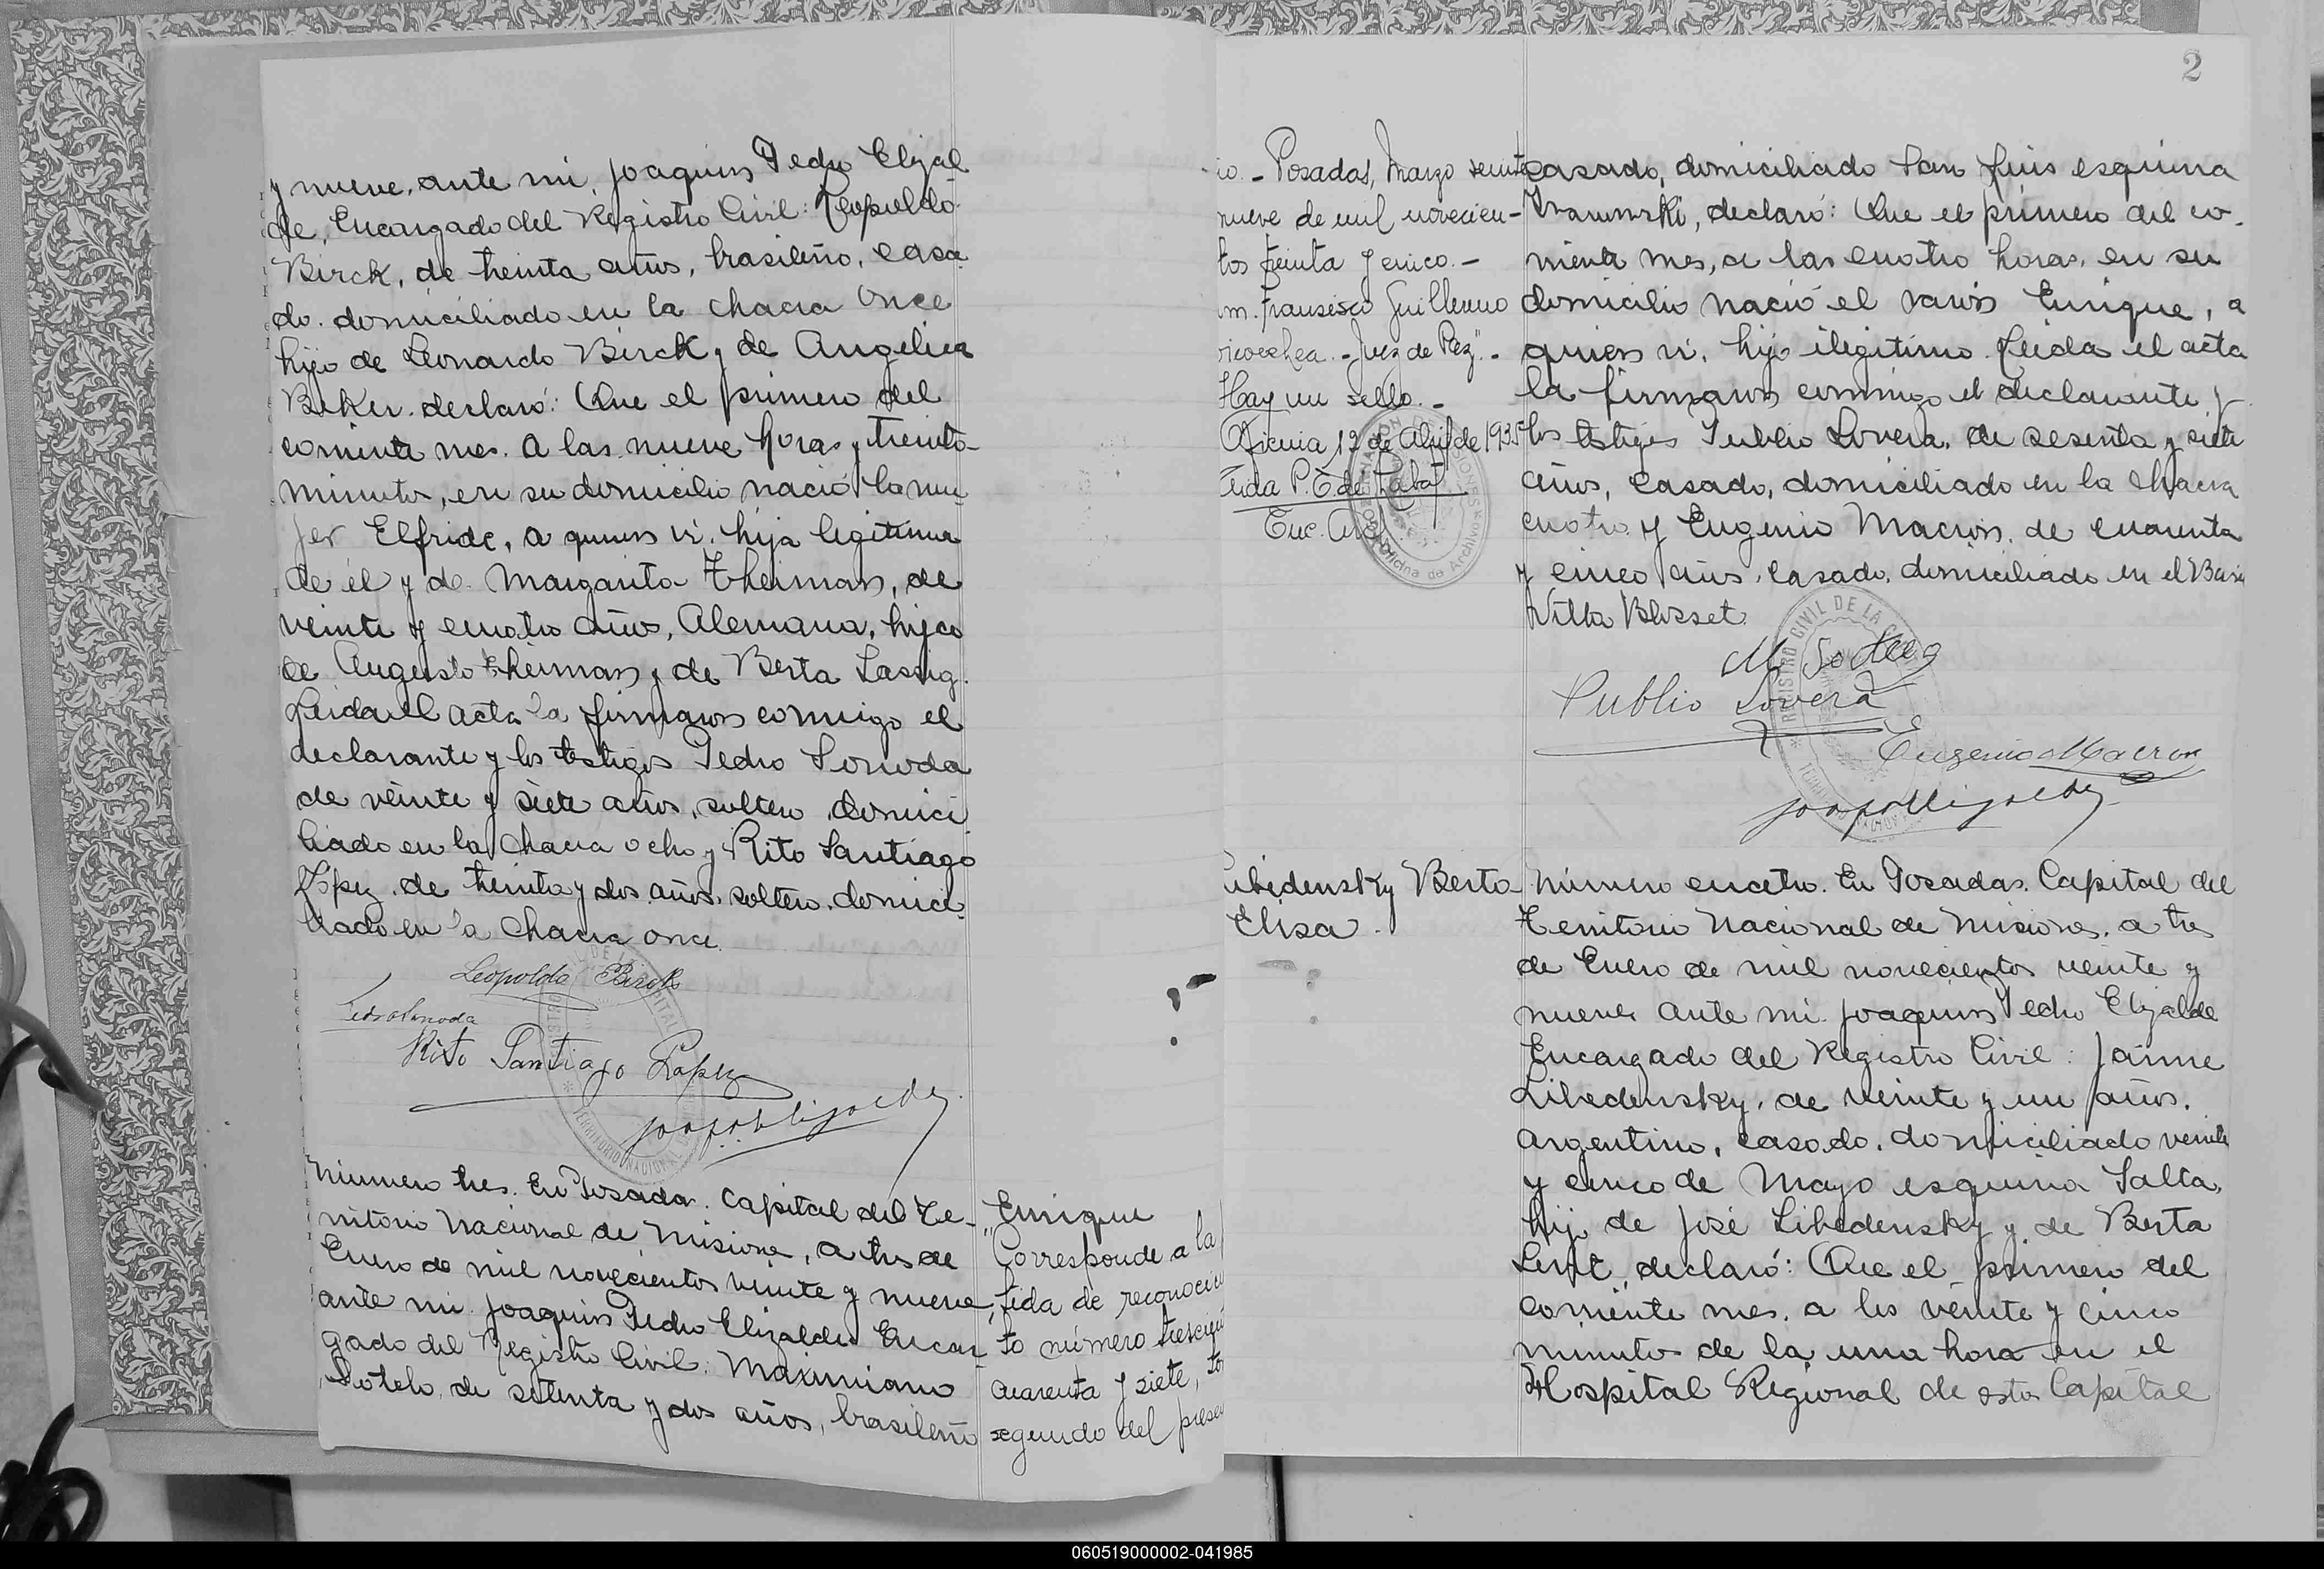 y nueve, ante mi, Joaquin Pedro Elizal
de, Encargado del Registro Civil: Leopoldo
Birck, de treinta años, brasileño, casa
do. domiciliado en la chacra once
hijo de Leonardo Birck y de Angélica
Beker. declaró: Que el primero del
corriente mes. a las nueve horas y treinta
minutos, en su domicilio nació la mu
jer Elfride, a quien vi. hija legitima
de él y de Margarita Theiman, de
veinte y cuatro años, Alemana, hija
de Augusto Theiman y de Berta Lassig.
Leida el acta la firmaron conmigo el
declarante y los testigos Pedro Sonoda
de veinte y siete años, soltero, domici
liado en la chacra ocho y Rito Santiago
López, de treinta y dos años, soltero, domici
liado en la chacra once.
Leopoldo Birck
Pedro Sonoda
Rito Santiago Lopez
Número tres. En Posadas. Capital del Te-
rritorio Nacional de Misiones, a tres de
Enero de mil novecientos veinte y nueve,
ante mi Joaquin Pedro Elizalde Encar
gado del Registro Civil: Maximiano
Sotelo, de setenta y dos años, brasileño
Enrique
"Corresponde a la
tida de reconocim
to número trescien
cuarenta y siete, to
segundo del presen
2
io. - Posadas, Marzo veinte
nueve de mil novecien-
tos treinta y cinco. -
m. Francisco Guillermo
icoechea. - Juez de Paz". -
Hay un sello. -
Oficina 1º de Abril de 1935
Enc. Arch.
casado, domiciliado San Luis esquina
declaró: Que el primero del co-
rriente mes, a las cuatro horas, en su
domicilio nació el varón Enrique, a
quien vi, hijo ilegitimo. Leida el acta
la firmaron conmigo el declarante y
los testigos Publio Lovera, de sesenta y siete
años, casado, domiciliado en la chacra
cuatro y Eugenio Macron, de cuarenta
y cinco años, casado, domiciliado en el Barrio
Villa Blosset.
M Sotelo
Publio Lovera
Eugenio Macron
Libedensky Berta
Elisa.
Número cuatro. En Posadas. Capital del
Territorio Nacional de Misiones, a tres
de Enero de mil novecientos veinte y
nueve ante mi Joaquin Pedro Elizalde
Encargado del Registro Civil: Jaime
Libedensky, de veinte y un años,
argentino, casado, domiciliado veinte
y cinco de Mayo esquina Salta,
hijo de José Libedensky y de Berta
declaró: Que el primero del
corriente mes, a los veinte y cinco
minutos de la una hora en el
Hospital Regional de esta Capital
060519000002-041985